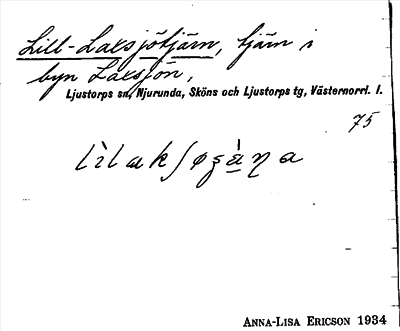 Lill-Laxsjötjärn, tjärn i
byn Laxsjön,
Ljustorps sn, Njurunda, Sköns och Ljustorps tg, Västernorrl. l.
75
Anna-Lisa Ericson 1934